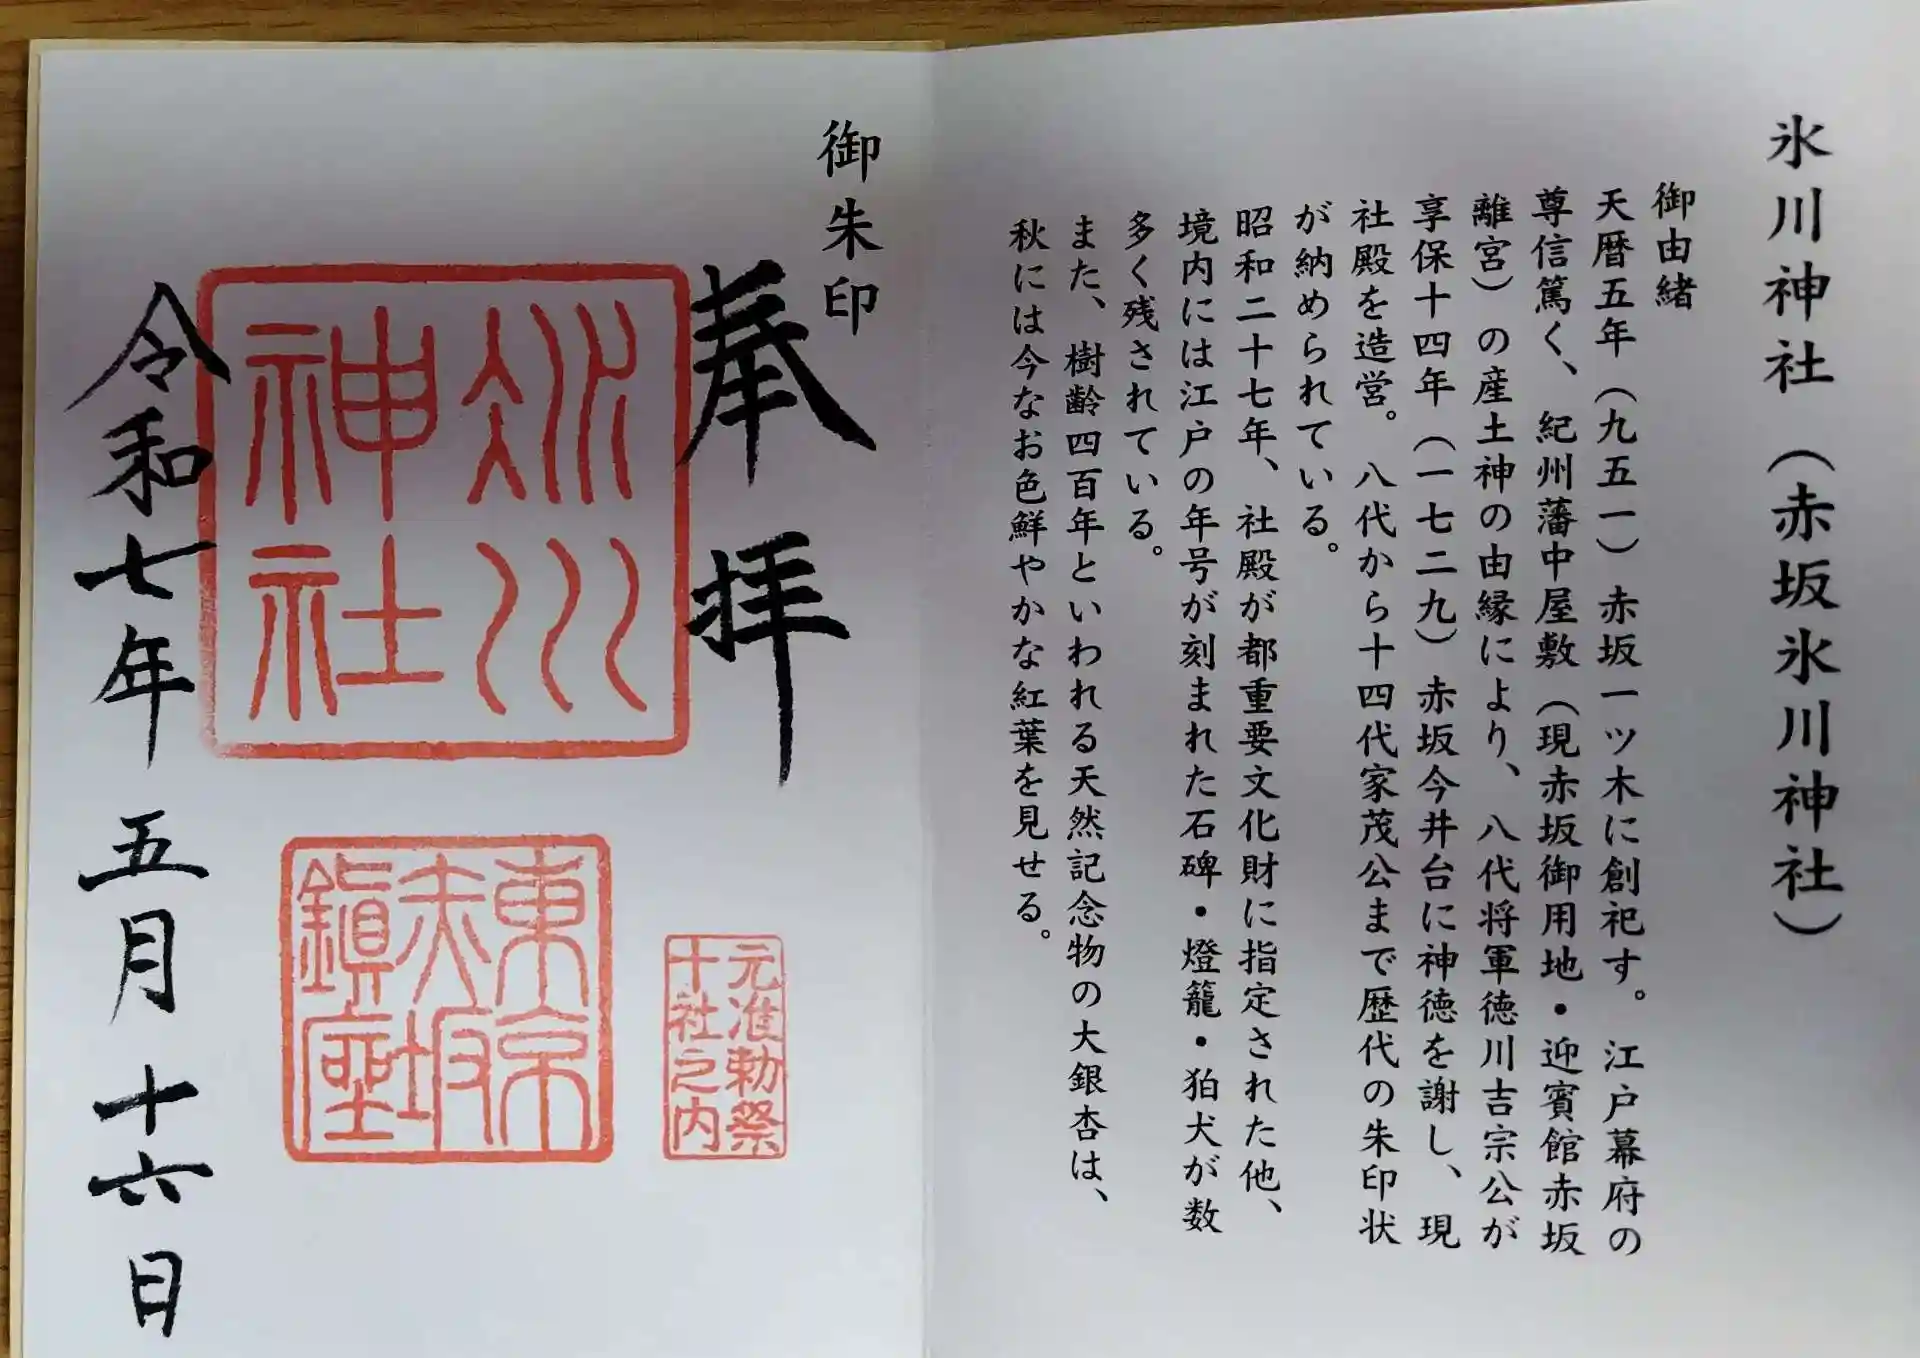 氷川神社（赤坂氷川神社）
御由緒
天暦五年（九五一）赤坂一ツ木に創祀す。江戸幕府の
尊信篤く、紀州藩中屋敷（現赤坂御用地・迎賓館赤坂
離宮）の産土神の由縁により、八代将軍徳川吉宗公が
享保十四年（一七二九）赤坂今井台に神徳を謝し、現
社殿を造営。八代から十四代家茂公まで歴代の朱印状
が納められている。
昭和二十七年、社殿が都重要文化財に指定された他、
境内には江戸の年号が刻まれた石碑・燈籠・狛犬が数
多く残されている。
また、樹齢四百年といわれる天然記念物の大銀杏は、
秋には今なお色鮮やかな紅葉を見せる。
御朱印
奉拝
元准勅祭
十社之内
氷川
神社
東京
赤坂
鎮座
令和七年五月十六日